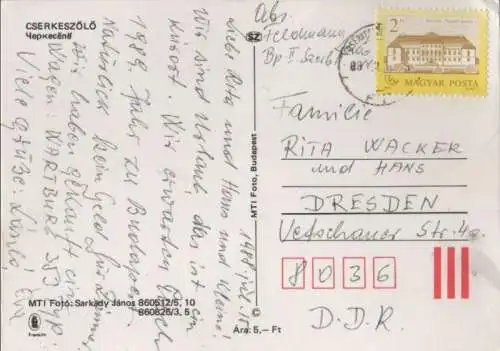 CSERKESZŐLŐ
Черкесёлё
SZ
Abs.
Feldmann
Bp II
2Ft
MAGYAR POSTA
1988. júl. 15
Liebe Rita und Hans und Kleine!
Wir sind Urlaub, das ist ein
Kurort. Wir erwarten Euch
1989. Jahr zu Budapest.
Natürlich kein Geld für Zimmer,
Wir haben gekauft ein
Wagen: WARTBURG 353
Viele Grüße: László Éva
MTI Foto, Budapest
©
Familie
RITA WACKER
und HANS
DRESDEN
Vetschauer Str. 4a.
8036
D.D.R.
MTI Fotó: Sarkady János 860512/5, 10
860826/3, 5
Ára: 5,— Ft